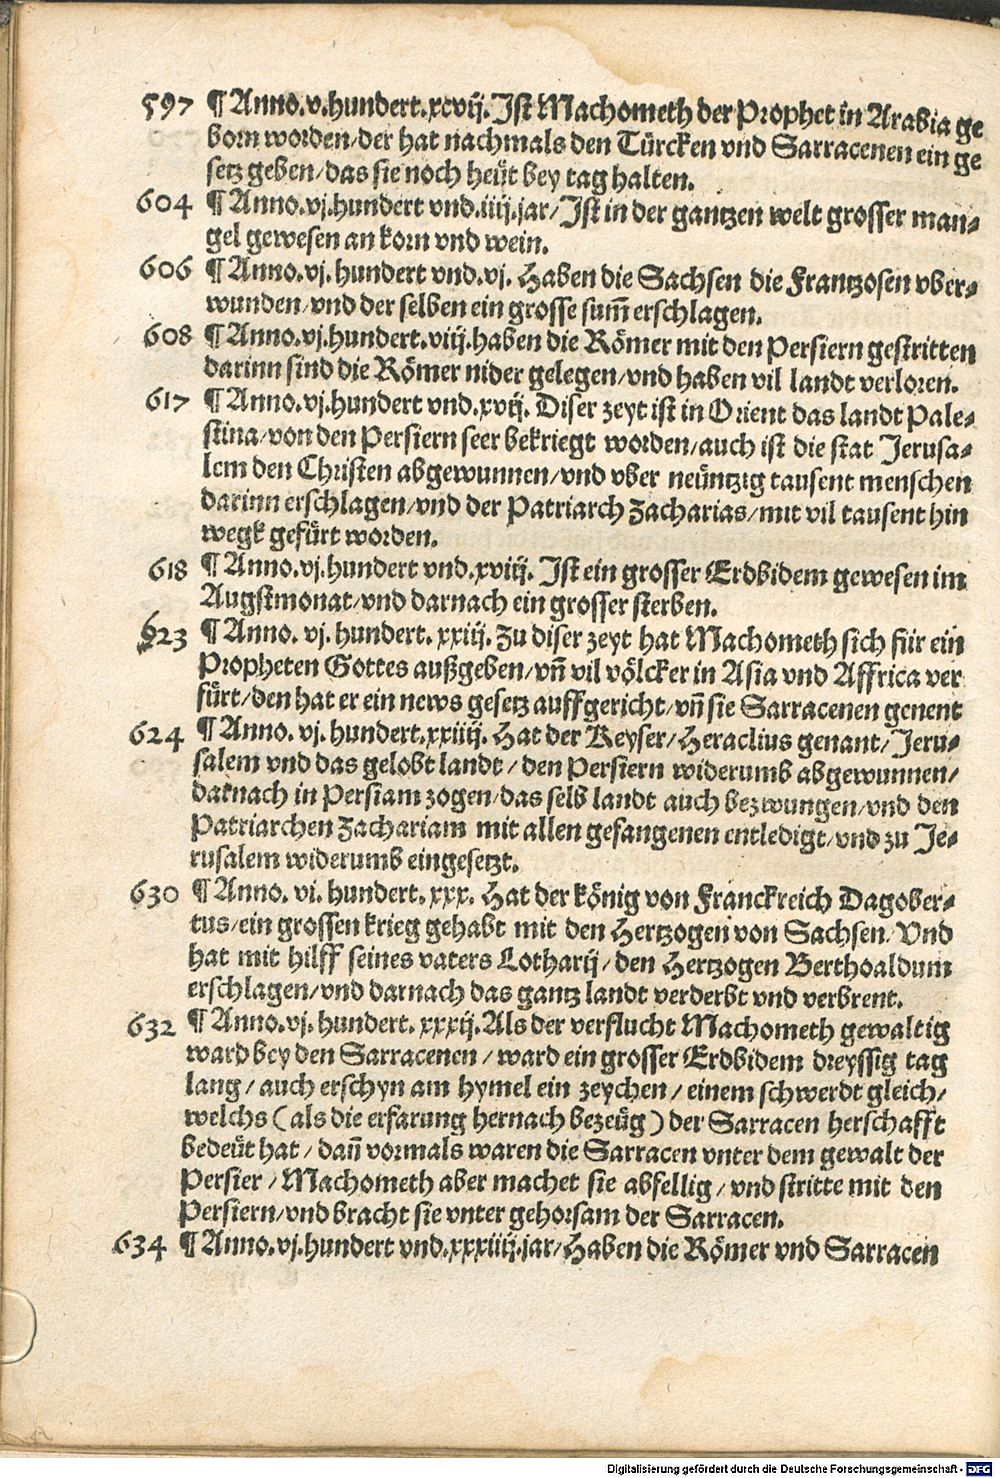 597 ¶ Anno.v.hundert.xcvij. Ist Machometh der Prophet in Arabia ge
born worden/der hat nachmals den Türcken vnd Sarracenen ein ge
setz geben/das sie noch heüt bey tag halten.
604 ¶ Anno.vj.hundert vnd.iiij.jar/Ist in der gantzen welt grosser man-
gel gewesen an korn vnd wein.
606 ¶ Anno.vj.hundert vnd.vj. Haben die Sachsen die Frantzosen vber-
wunden/vnd der selben ein grosse sum̄ erschlagen.
608 ¶ Anno.vj.hundert.viij.haben die Römer mit den Persiern gestritten
darinn sind die Römer nider gelegen/vnd haben vil landt verloren.
617 ¶ Anno.vj.hundert vnd.xvij. Diser zeyt ist in Orient das landt Pale-
stina/von den Persiern seer bekriegt worden/auch ist die stat Jerusa-
lem den Christen abgewunnen/vnd vber neüntzig tausent menschen
darinn erschlagen/vnd der Patriarch Zacharias/mit vil tausent hin
wegk gefürt worden.
618 ¶ Anno.vj.hundert vnd.xviij. Ist ein grosser Erdbidem gewesen im
Augstmonat/vnd darnach ein grosser sterben.
623 ¶ Anno. vj. hundert. xxiij. Zu diser zeyt hat Machometh sich für ein
Propheten Gottes außgeben/vn̄ vil völcker in Asia vnd Affrica ver
fürt/den hat er ein news gesetz auffgericht/vn̄ sie Sarracenen genent
624 ¶ Anno. vj. hundert.xxiiij. Hat der Keyser/Heraclius genant/Jeru-
salem vnd das gelobt landt/den Persiern widerumb abgewunnen/
darnach in Persiam zogen/das selb landt auch bezwungen/vnd den
Patriarchen Zachariam mit allen gefangenen entledigt/vnd zu Je-
rusalem widerumb eingesetzt.
630 ¶ Anno. vi. hundert. xxx. Hat der könig von Franckreich Dagober-
tus/ein grossen krieg gehabt mit den Hertzogen von Sachsen/Vnd
hat mit hilff seines vaters Lotharij/den Hertzogen Berthoaldum
erschlagen/vnd darnach das gantz landt verderbt vnd verbrent.
632 ¶ Anno.vj. hundert. xxxij. Als der verflucht Machometh gewaltig
ward bey den Sarracenen/ward ein grosser Erdbidem dreyssig tag
lang/auch erschyn am hymel ein zeychen/einem schwerdt gleich/
welchs (als die erfarung hernach bezeüg) der Sarracen herschafft
bedeüt hat/dan̄ vormals waren die Sarracen vnter dem gewalt der
Persier/Machometh aber machet sie abfellig/vnd stritte mit den
Persiern/vnd bracht sie vnter gehorsam der Sarracen.
634 ¶ Anno.vj.hundert vnd.xxxiiij.jar/Haben die Römer vnd Sarracen
Digitalisierung gefördert durch die Deutsche Forschungsgemeinschaft - DFG